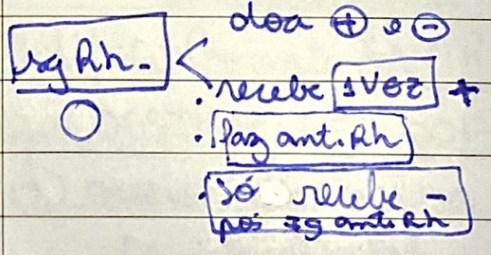 doa ⊕ e ⊖
sg Rh -
. recebe 1 VEZ +
. faz anti.Rh
. só recebe -
pós sg anti Rh